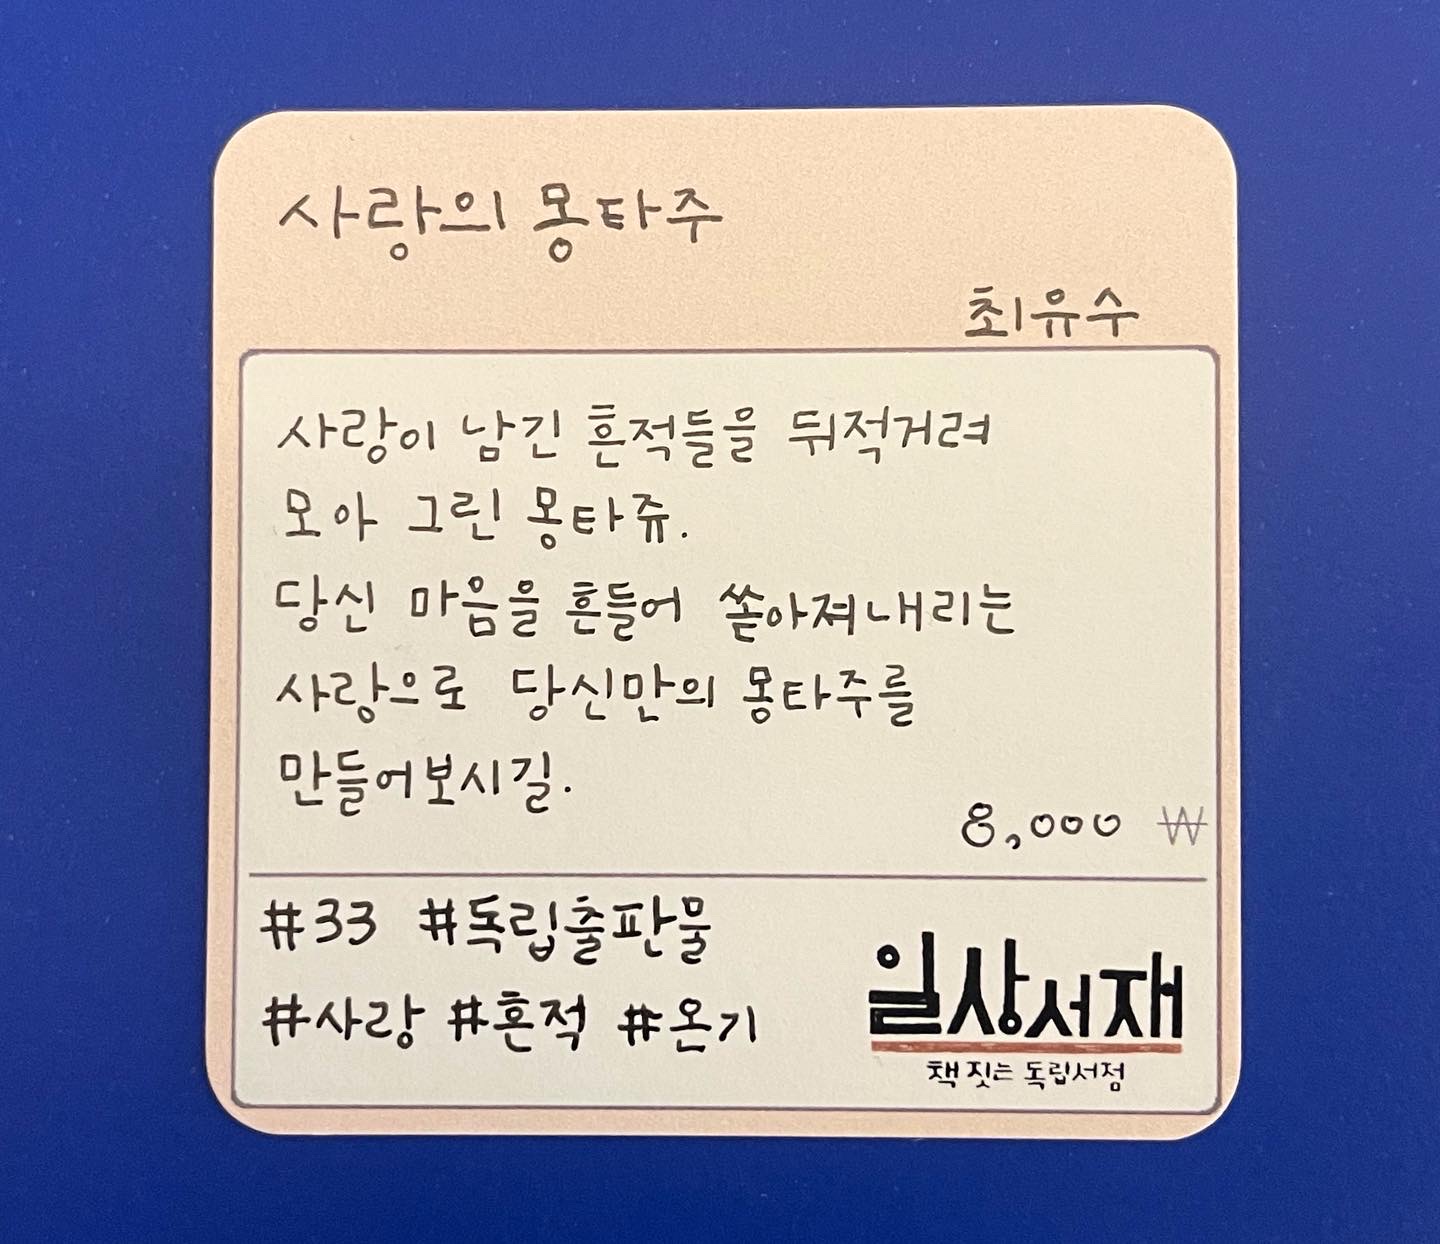 사랑의 몽타주
최유수
사랑이 남긴 흔적들을 뒤적거려
모아 그린 몽타쥬.
당신 마음을 흔들어 쏟아져내리는
사랑으로 당신만의 몽타주를
만들어보시길.
8,000 ₩
#33 #독립출판물
#사랑 #흔적 #온기
일상서재
책 짓는 독립서점